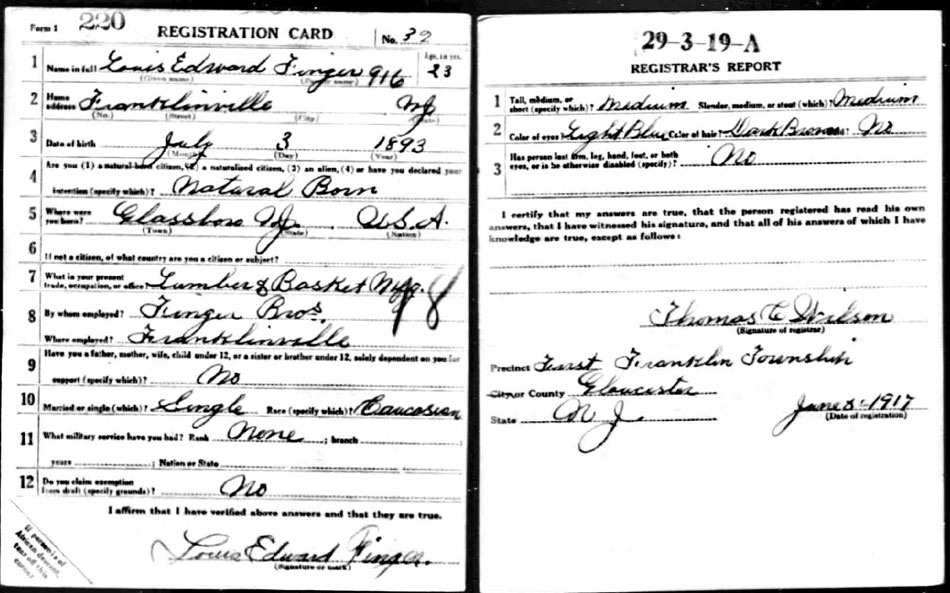 Form 1 220 REGISTRATION CARD No. 32
1 Name in full Louis Edward Finger 916 Age, in yrs. 23
(Given name) (Family name)
2 Home address Franklinville NJ
(No.) (Street) (City) (State)
3 Date of birth July 3 1893
(Month) (Day) (Year)
4 Are you (1) a natural-born citizen, (2) a naturalized citizen, (3) an alien, (4) or have you declared your
intention (specify which)? Natural Born
5 Where were you born? Glassboro NJ. U.S.A.
(Town) (State) (Nation)
6 If not a citizen, of what country are you a citizen or subject?
7 What is your present trade, occupation, or office? Lumber & Basket Mfg.
8 By whom employed? Finger Bros.
Where employed? Franklinville
9 Have you a father, mother, wife, child under 12, or a sister or brother under 12, solely dependent on you for
support (specify which)? No
10 Married or single (which)? Single Race (specify which)? Caucasian
11 What military service have you had? Rank None ; branch
years ; Nation or State
12 Do you claim exemption from draft (specify grounds)? No
I affirm that I have verified above answers and that they are true.
Louis Edward Finger.
(Signature or mark)
If person is of
African descent,
tear off this
corner
29-3-19-A
REGISTRAR'S REPORT
1 Tall, medium, or short (specify which)? Medium Slender, medium, or stout (which)? Medium
2 Color of eyes? Light Blue Color of hair? Dark Brown No
3 Has person lost arm, leg, hand, foot, or both eyes, or is he otherwise disabled (specify)? No
I certify that my answers are true, that the person registered has read his own
answers, that I have witnessed his signature, and that all of his answers of which I have
knowledge are true, except as follows:
Thomas C Wilson
(Signature of registrar)
Precinct First Franklin Township
City or County Gloucester
State N J. June 5-1917
(Date of registration)